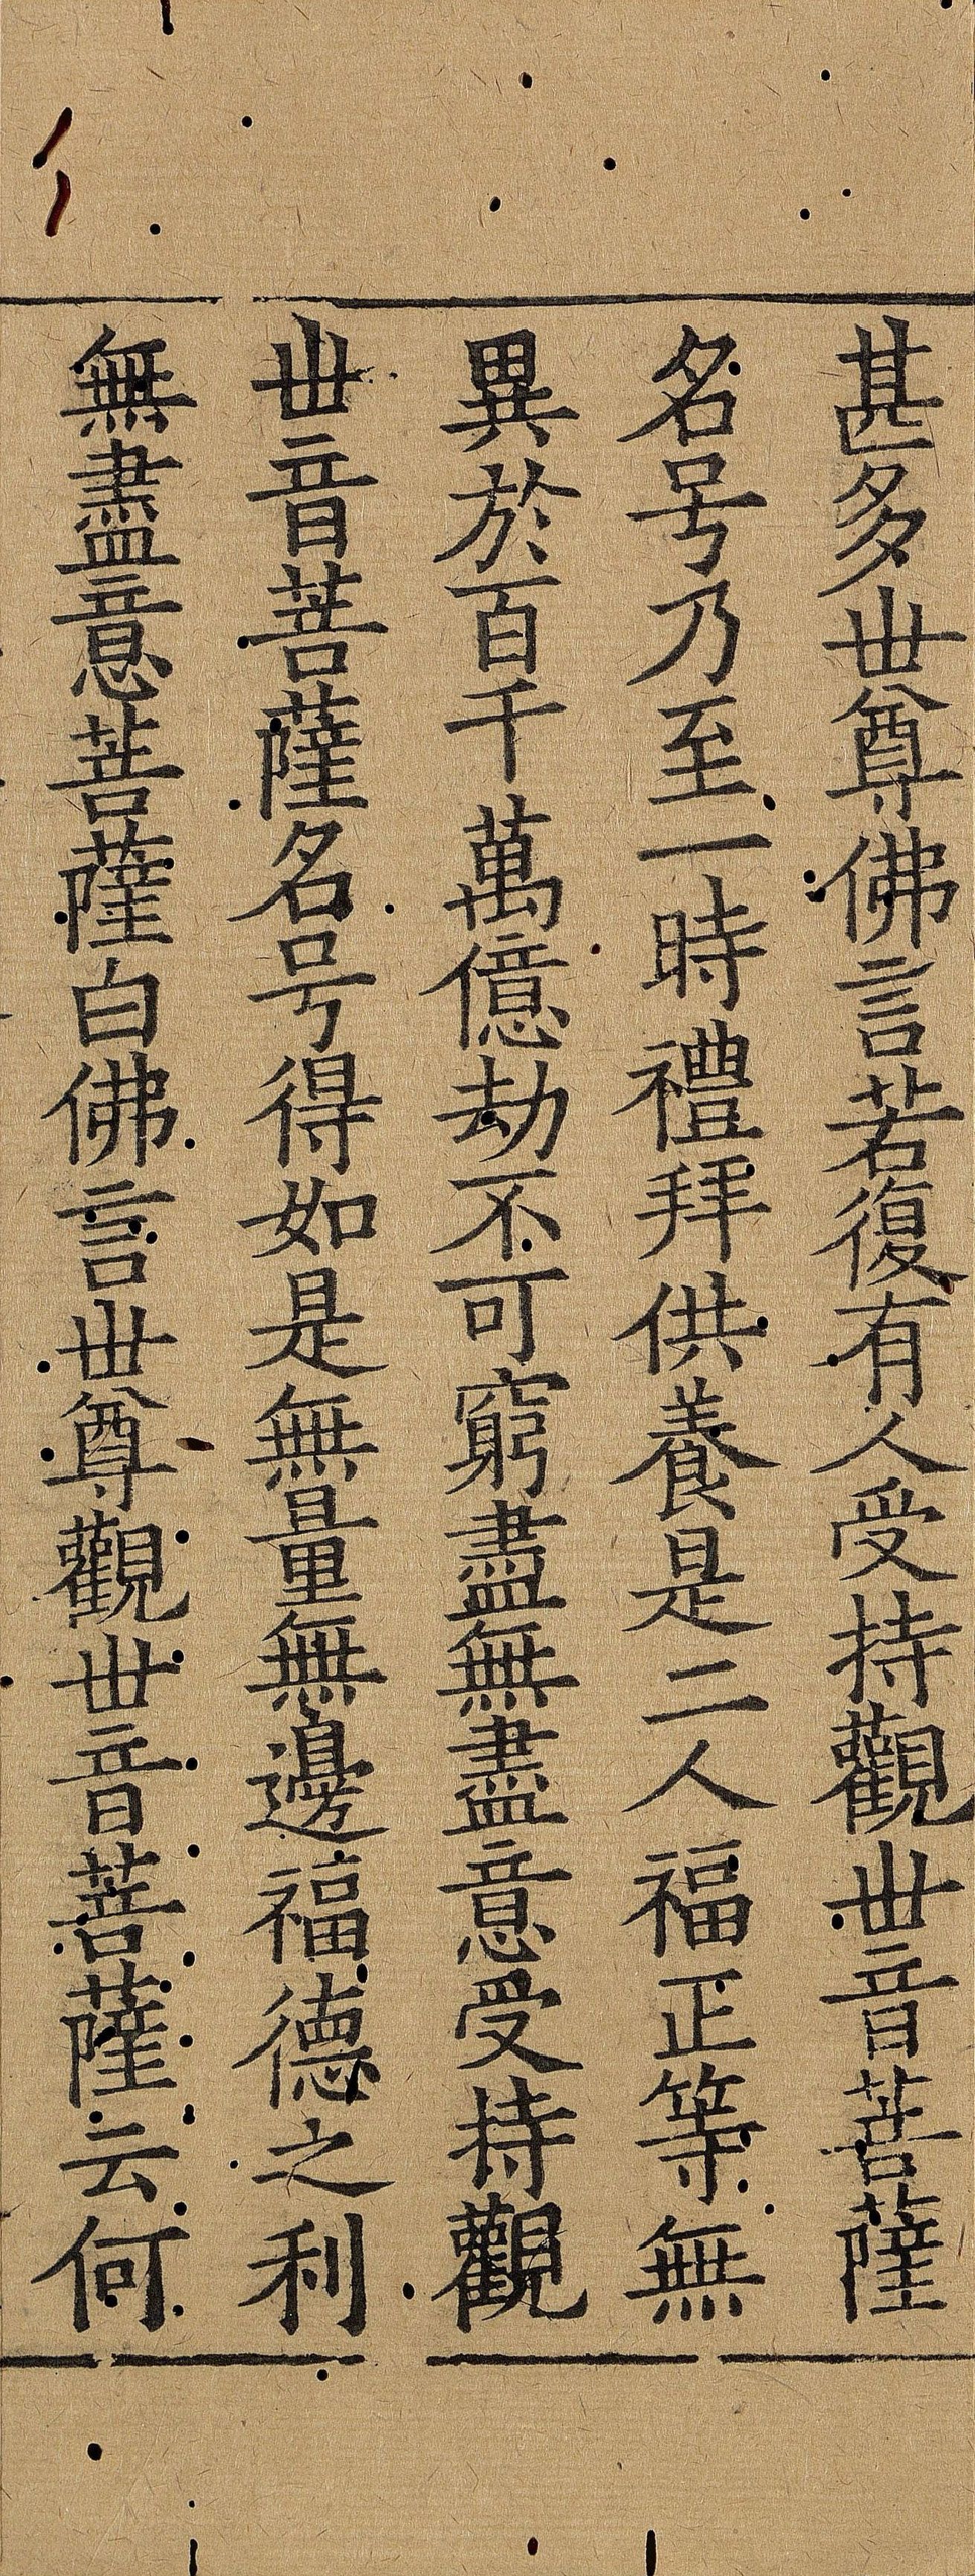 甚多丗尊佛言若復有人受持觀丗音菩薩
名号乃至一時禮拜供養是二人福正等無
異於百千萬億劫不可窮盡無盡意受持觀
丗音菩薩名号得如是無量無邊福德之利
無盡意菩薩白佛言丗尊觀丗音菩薩云何